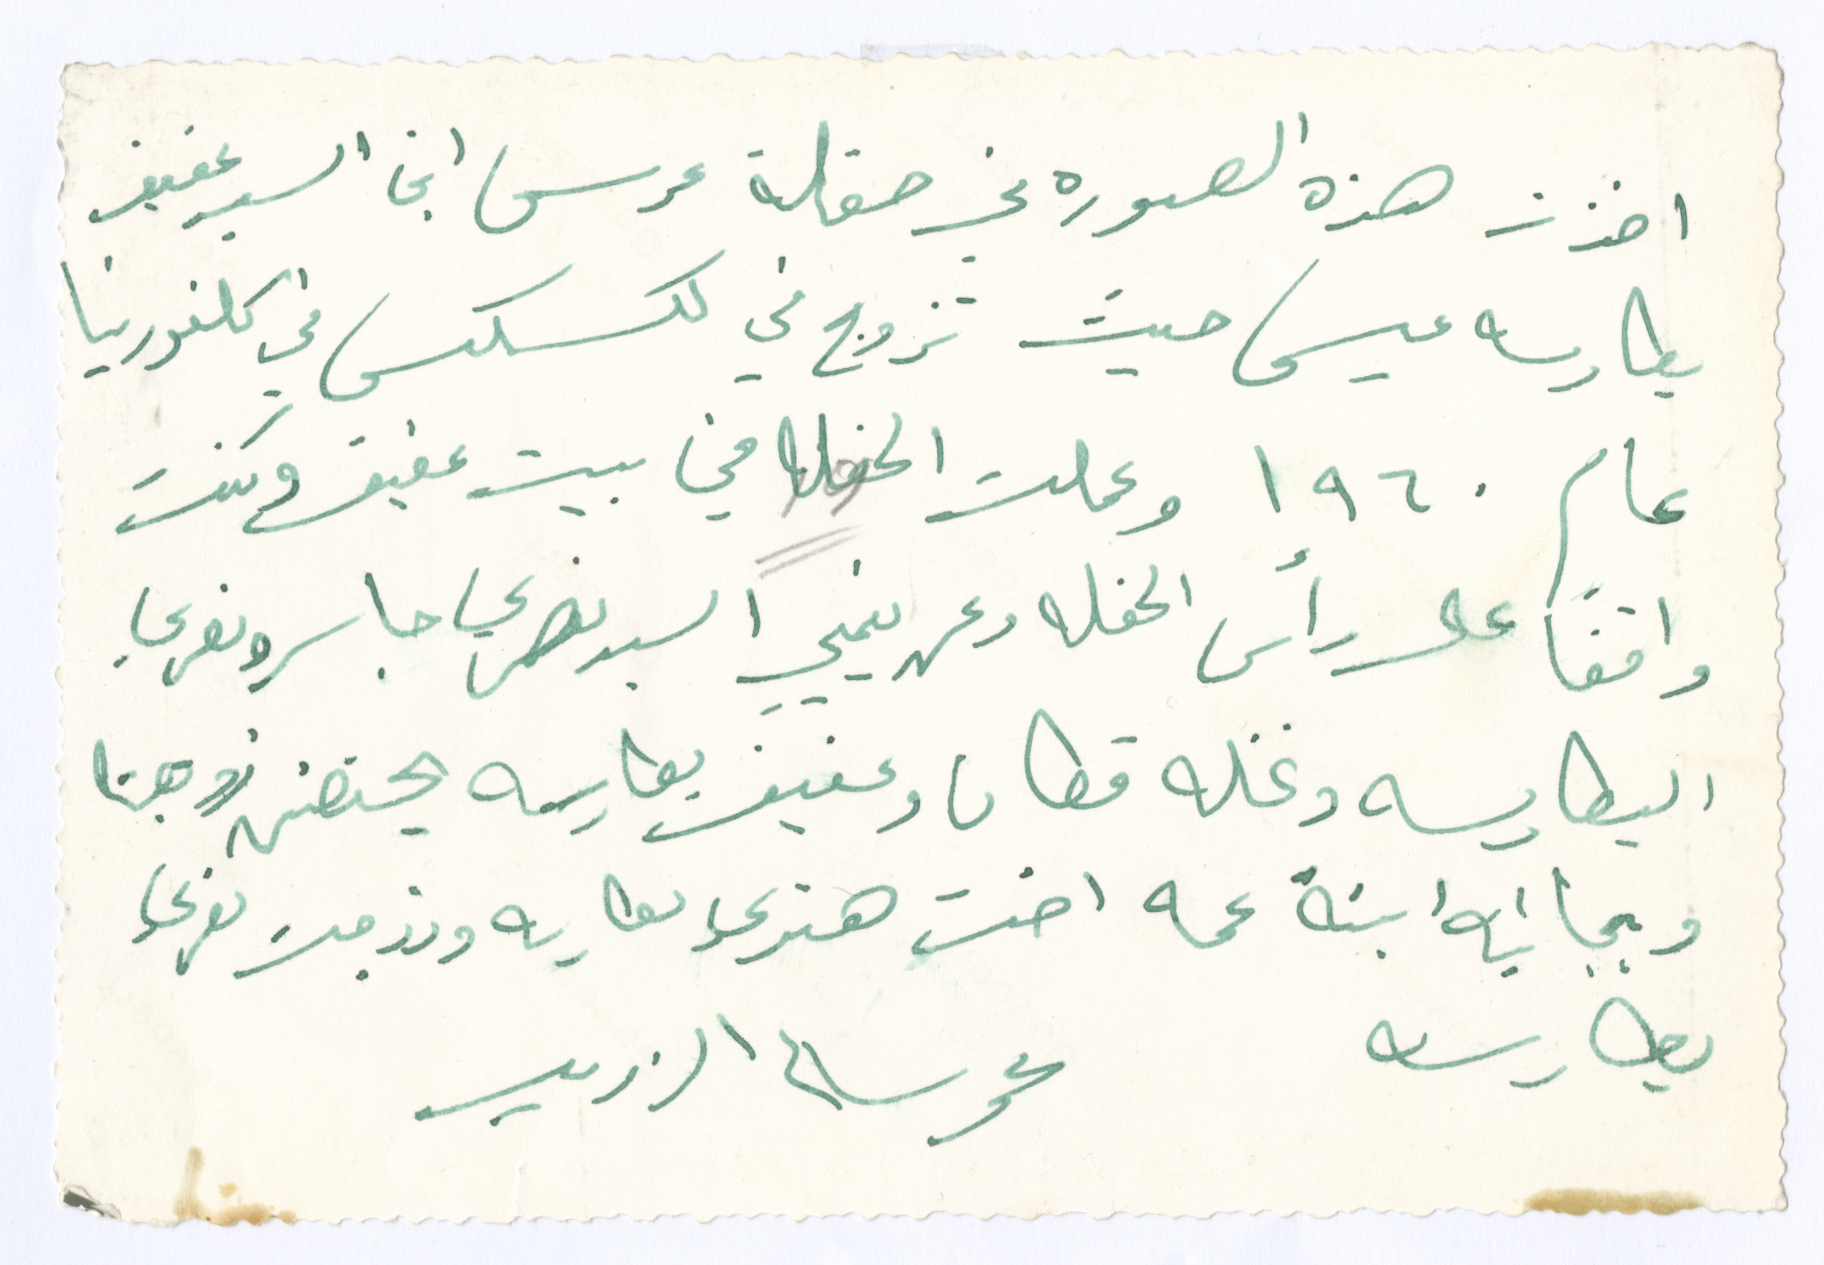 اخذت هذه الصوره في حفلة عرس ابن السيد عفيف
بطارسه عيسى حيث تزوج في لكسكس في كلفورنيا
عام ١٩٦٠ وعملت الحفله في بيت عفيف وكنت
واقفاً على رأس الحفله وعن يميني السيد نصري جاسر ونصري
البطارسه ونخله قطان وعفيف بطارسه يحتضن زوجتنا
وبجانبه ابنة عمه اخت هنري بطارسه وزوجت نصري
بطارسه